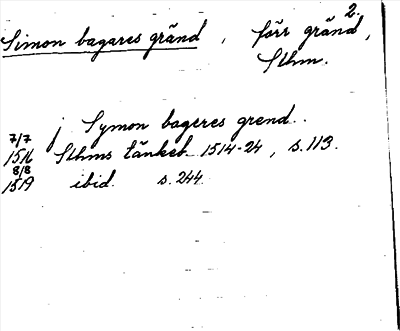 2.
Simon bagares gränd, förr gränd,
Sthm.
j Symon bageres grend.
7/7
1516 Sthms tänkeb. 1514-24, s. 113.
8/8
1519 ibid. s. 244